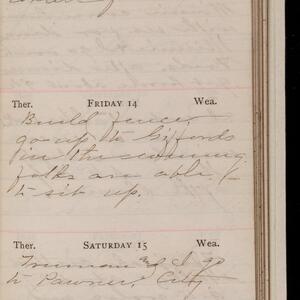 Ther. FRIDAY 14 Wea.
Build fence,
go up to Giffords
in the evening
folks are able
to sit up.
Ther. SATURDAY 15 Wea.
Truman and I go
to Pawnee City